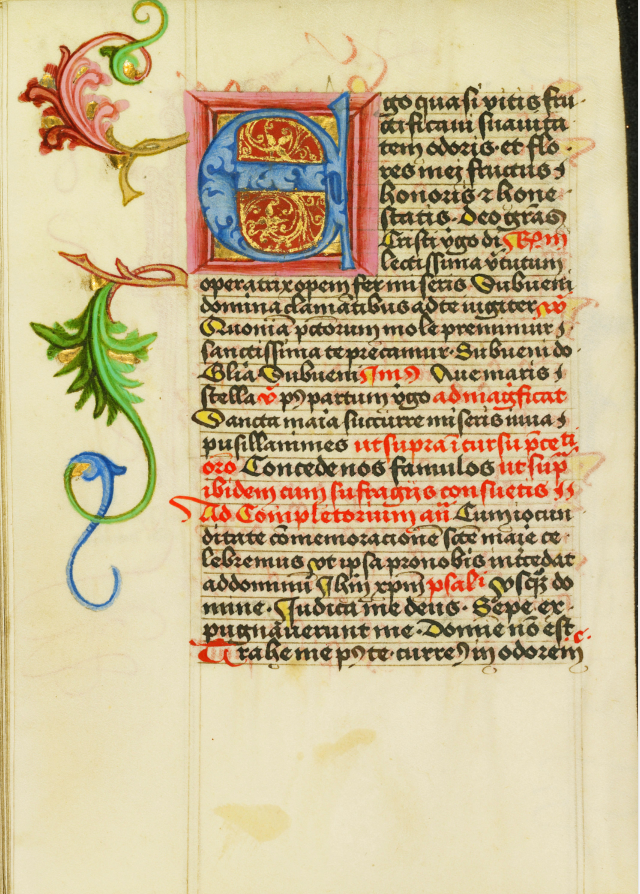 Ego quasi vitis fru
ctificaui suauita
tem odoris · et flo
res mei fructus ·
honoris ⁊ hone
statis · Deo grās
Cristi v̄go di
lectissima v̄tutum
operatrix opem fer miseris Subueni
domina clamātibus ad te iugiter v̄
Quoniā pctorum mole premimur ·
sanctissima te precamur · Subueni do
Glīa Subueni ymꝰ Aue maris
stella v̄ pꝰ partum v̄go ad magficat
Sancta maīa succurre miseris iuua
pusillanimes ut supra ī cursu
orō Concede nos famulos ut sup̄
ibidem cum suffragiis consuetis
Ad Completorium an̄ Cum iocun
ditate cōmemoracionē scte marie ce
lebremus vt ipsa pro nobis int̄cedat
ad dominū Ihm̄ xp̄m psalī vsq̄z do
mine · Iudica me deus · Sepe ex
pugnauerunt me · Domīe nō est c̄
Trahe me pꝰ te · curreꝰ in odorem